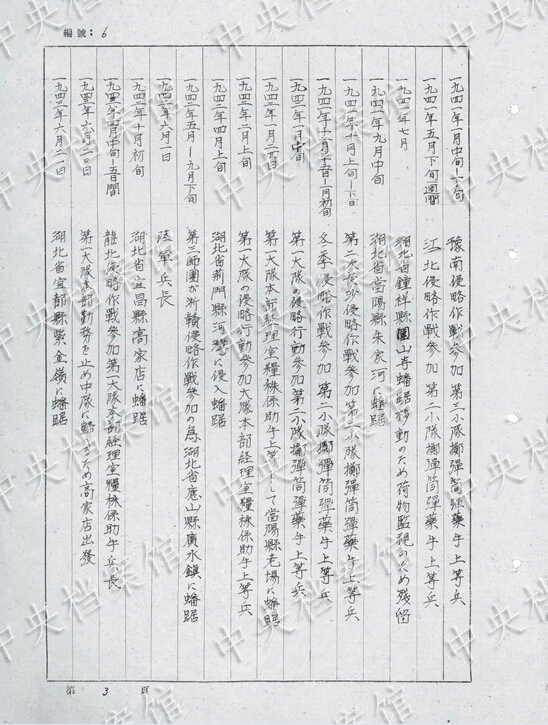 編號：6
一九四一年1月中旬－下旬 豫南侵略作戰参加 第二小隊擲彈筒彈藥手 上等兵
一九四一年五月下旬一週間 江北侵略作戰参加 第二小隊擲彈筒彈藥手 上等兵
一九四一年七月 湖北省鐘祥縣圓山寺蟠踞移動のため荷物監視のため残留
一九四一年九月中旬 湖北省當陽縣朱家河に蟠踞
一九四一年十月上旬－下旬 第二次長沙侵略作戰参加 第二小隊擲彈筒彈藥手 上等兵
一九四一年十二月二十五日－一月初旬 冬季侵略作戰参加 第二小隊擲彈筒彈藥手 上等兵
一九四二年一月中旬 第一大隊の侵略行動参加 第二小隊擲彈筒彈藥手 上等兵
一九四二年一月二〇日 第一大隊本部経理室糧秣係助手 上等兵として當陽縣老場に蟠踞
一九四二年二月上旬 第一大隊の侵略行動参加 大隊本部経理室糧秣係助手 上等兵
一九四二年四月上旬 湖北省荊門縣河溶に侵入蟠踞
一九四二年五月－九月下旬 第三師團が浙贛侵略作戰参加の為湖北省應山縣廣水鎮に蟠踞
一九四二年六月一日 陸軍兵長
一九四二年十月初旬 湖北省宜昌縣高家店に蟠踞
一九四三年四月中旬－一五日間 龍北侵略作戰参加 第一大隊本部経理室糧秣係助手 兵長
一九四三年六月二〇日 第一大隊本部勤務を止め中隊に歸へるため高家店出發
一九四三年六月二一日 湖北省宜都縣紫金嶺に蟠踞
第 3 頁
中央档案馆